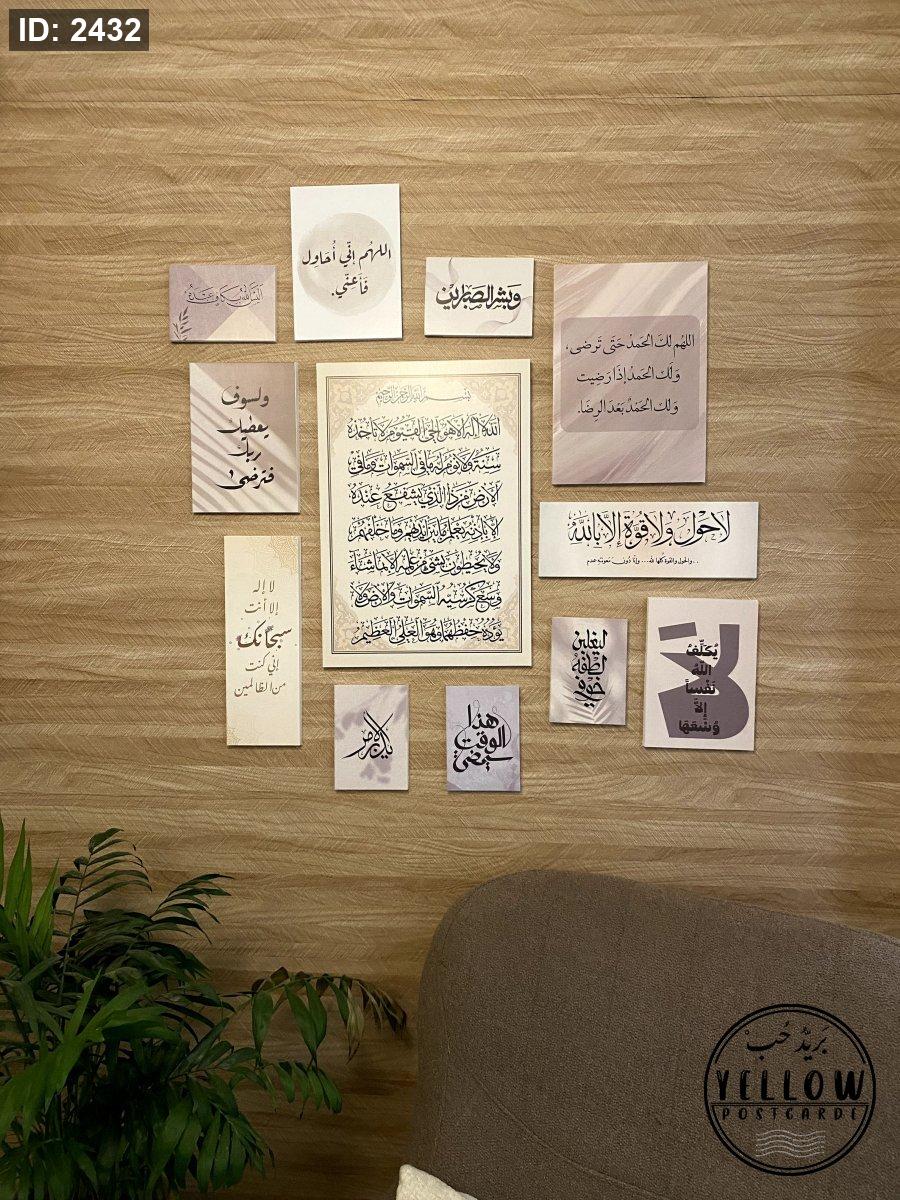 ID: 2432
اللهُم إنّي أُحَاوِل
فَأَعِنّي.
أليس الله بكاف عبده
وَبَشِّرِ الصَّابِرِينَ
اللهُم لكَ الحَمدْ حَتى تَرضى،
وَلَك الحَمدْ إذَا رَضِيت
وَلك الحَمدْ بَعْدَ الرِضَا.
ولسوف
يعطيك
ربك
فترضى
بِسْمِ اللَّهِ الرَّحْمَنِ الرَّحِيمِ
اللَّهُ لَا إِلَهَ إِلَّا هُوَ الْحَيُّ الْقَيُّومُ لَا تَأْخُذُهُ
سِنَةٌ وَلَا نَوْمٌ لَهُ مَا فِي السَّمَوَاتِ وَمَا فِي
الْأَرْضِ مَن ذَا الَّذِي يَشْفَعُ عِنْدَهُ
إِلَّا بِإِذْنِهِ يَعْلَمُ مَا بَيْنَ أَيْدِيهِمْ وَمَا خَلْفَهُمْ
وَلَا يُحِيطُونَ بِشَيْءٍ مِنْ عِلْمِهِ إِلَّا بِمَا شَاءَ
وَسِعَ كُرْسِيُّهُ السَّمَوَاتِ وَالْأَرْضَ وَلَا
يَئُودُهُ حِفْظُهُمَا وَهُوَ الْعَلِيُّ الْعَظِيمُ
لَا حَوْلَ وَلَا قُوَّةَ إِلَّا بِاللَّهِ
..والحول والقوة كلها لله... وإنا دُون معونته عدم
لا إله
إلا أنت
سبحانك
إني كنت
من الظالمين
ليغلبن
لطفه
خوفي
لا
يُكَلِّفُ
اللَّهُ
نَفْساً
إِلَّا
وُسْعَهَا
يدبر الأمر
هذا
الوقت
سيمضي
بَريدُ حُبْ
YELLOW
POSTCARDE